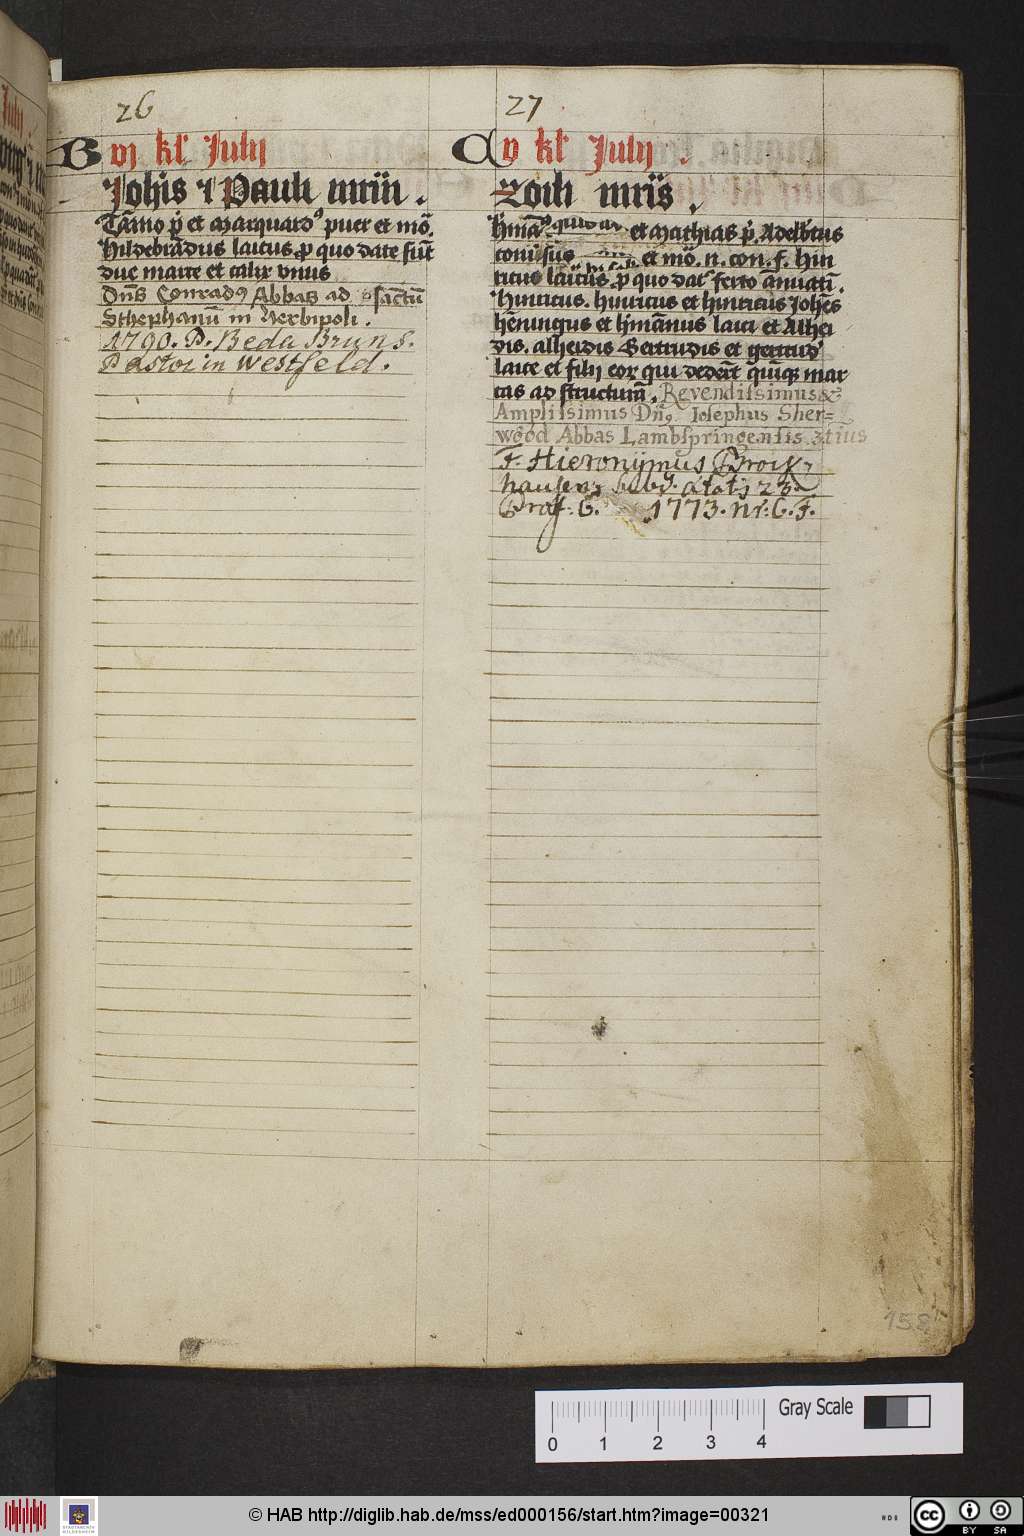 26
B vj kl' July
Joh̄is ⁊ Pauli mrm̄ .
Tam̄o pr̄ et Marquard9 puer et mō.
Hildebrādus laicus pro quo date sūt
due marce et calix vnus
Dn̄s Conrad9 Abbas ad sāctū
Sthephanū in Herbipoli .
1790. P. Beda Bruns.
Pastor in Westfeld.
27
C v kl' July .
Zoili mr̄is .
et Mathias pr̄. Adelb'tus
et mō. n. con. f. Hin
ricus laicus pro quo dat' ferto ānuati .
Hinricus. Hinricus et Hinricus Joh̄es
Hēningus et Hmānus laici et Alhei
dis. Alheidis Gertrudis et gertrud'
laice et filij eor qui dedert̄ quīq3 mar
cas ad structurā. Revendissimus &
Amplissimus Dn9 Iosephus Sher=
wood Abbas Lambspringensis 3tius
F. Hieronymus Brock,
hausen, ætatis 23.
Prof: 6. 1773. nr: 6. F.
158
0 1 2 3 4
Gray Scale
© HAB http://diglib.hab.de/mss/ed000156/start.htm?image=00321
cc BY SA